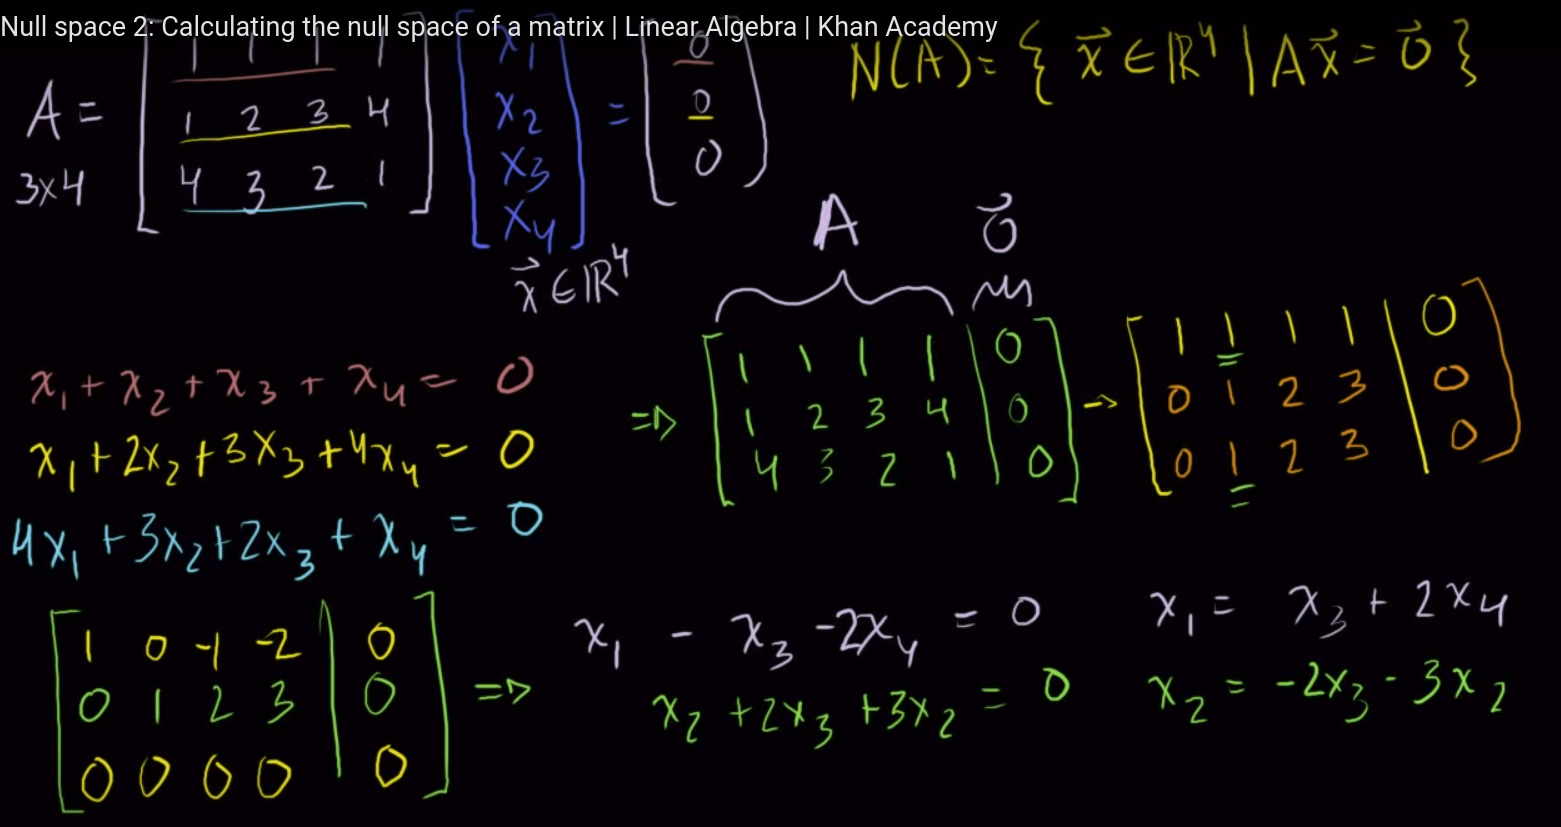 Null space 2: Calculating the null space of a matrix | Linear Algebra | Khan Academy
A = [ 1 1 1 1 ; 1 2 3 4 ; 4 3 2 1 ] [ x₁ ; x₂ ; x₃ ; x₄ ] = [ 0 ; 0 ; 0 ]
3x4
N(A) = { x⃗ ∈ ℝ⁴ | A x⃗ = 0⃗ }
x⃗ ∈ ℝ⁴
A 0⃗
x₁ + x₂ + x₃ + x₄ = 0
x₁ + 2x₂ + 3x₃ + 4x₄ = 0
4x₁ + 3x₂ + 2x₃ + x₄ = 0
⇒ [ 1 1 1 1 | 0 ; 1 2 3 4 | 0 ; 4 3 2 1 | 0 ] → [ 1 1 1 1 | 0 ; 0 1 2 3 | 0 ; 0 1 2 3 | 0 ]
[ 1 0 -1 -2 | 0 ; 0 1 2 3 | 0 ; 0 0 0 0 | 0 ] ⇒
x₁ - x₃ - 2x₄ = 0
x₂ + 2x₃ + 3x₂ = 0
x₁ = x₃ + 2x₄
x₂ = -2x₃ - 3x₂